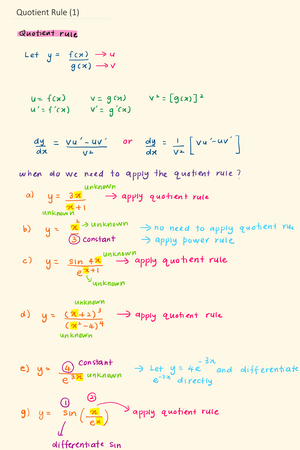 Quotient Rule (1)
Quotient rule
Let y = f(x) → u
g(x) → v
u = f(x) v = g(x) v² = [g(x)]²
u' = f'(x) v' = g'(x)
dy/dx = vu' - uv' / v² or dy/dx = 1/v² [vu' - uv']
when do we need to apply the quotient rule?
unknown
a) y = 3x / x+1 → apply quotient rule
unknown
b) y = x² → unknown → no need to apply quotient rule
③ constant → apply power rule
unknown
c) y = sin 4x / e^(x+1) → apply quotient rule
unknown
unknown
d) y = (x+2)³ / (x²-4)⁴ → apply quotient rule
unknown
constant
e) y = ④ / e^(3x) unknown → Let y = 4e^(-3x) and differentiate
e^(-3x) directly
① ②
g) y = sin (x / e^x) apply quotient rule
differentiate sin